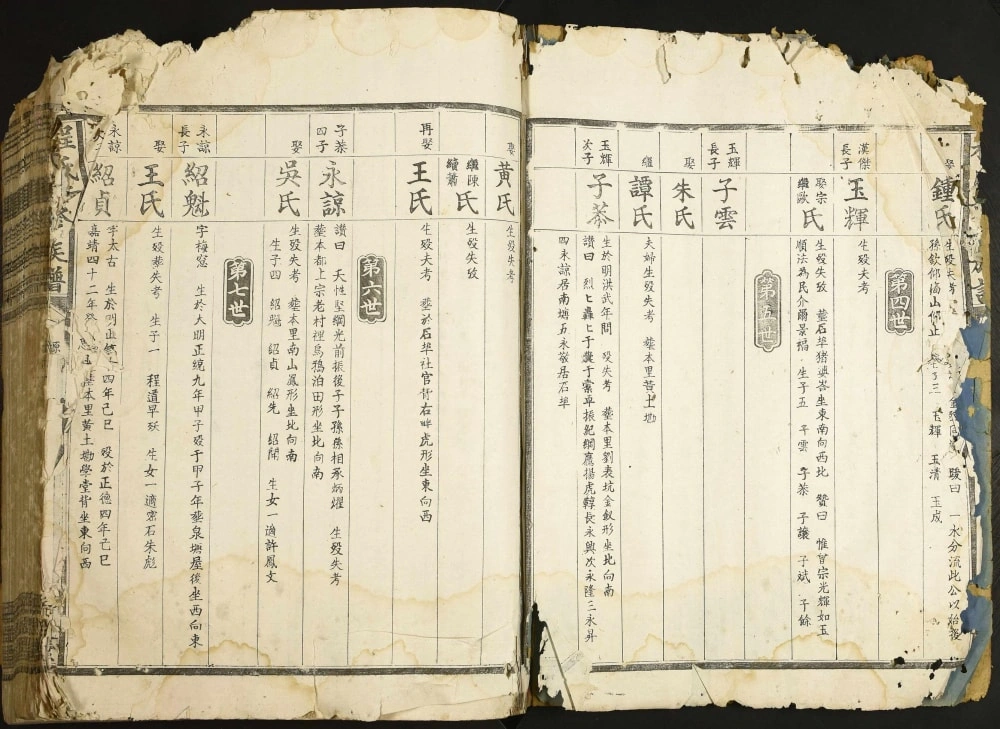 娶
鍾氏
生歿失考
駿曰 一水分流此公以始後
孫欽仰僑山仰止
玉輝 玉清 玉成
第四世
漢傑
長子
玉輝
生歿失考
娶宗
繼歐
氏
生歿失攷 塟石埠豬𡶶峇坐東南向西北 贊曰 惟曾宗光輝如玉
順法為民介爾景福 生子五 子雲 子棻 子讓 子斌 子餘
第五世
玉輝
長子
子雲
娶
朱氏
繼
譚氏
夫婦生歿失考 塟本里黃土墈
玉輝
次子
子棻
生於明洪武年間 歿失考 塟本里劉表坑金釵形坐北向南
讚曰 烈匕轟匕于囊于橐卓振紀綱鷹揚虎𩋾長永興次永隆三永昇
四永諒居南塘五永敬居石埠
娶
黃氏
生歿失考
繼陳
續蕭
氏
生歿失攷
再娶
王氏
生歿失考 塟於石埠社官背右畔虎形坐東向西
第六世
子棻
四子
永諒
讚曰 天性堅綱光前振後子子孫孫相承炳燿 生歿失考
塟本都上宗老村裡烏鴉泊田形坐北向南
娶
吳氏
生歿失考 塟本里南山鳳形坐北向南
生子四 紹魁 紹貞 紹先 紹開 生女一適許鳳文
第七世
永諒
長子
紹魁
字梅窓 生於大明正統九年甲子歿于甲子年塟泉塘屋後坐西向東
娶
王氏
生歿塟失考 生子一 程遣早殀 生女一適窑石朱彪
永諒
次
紹貞
字太古 生於明正統 四年己巳 歿於正德四年己巳
嘉靖四十二年癸 塟本里黃土墈學堂背坐東向西
程氏 修族譜